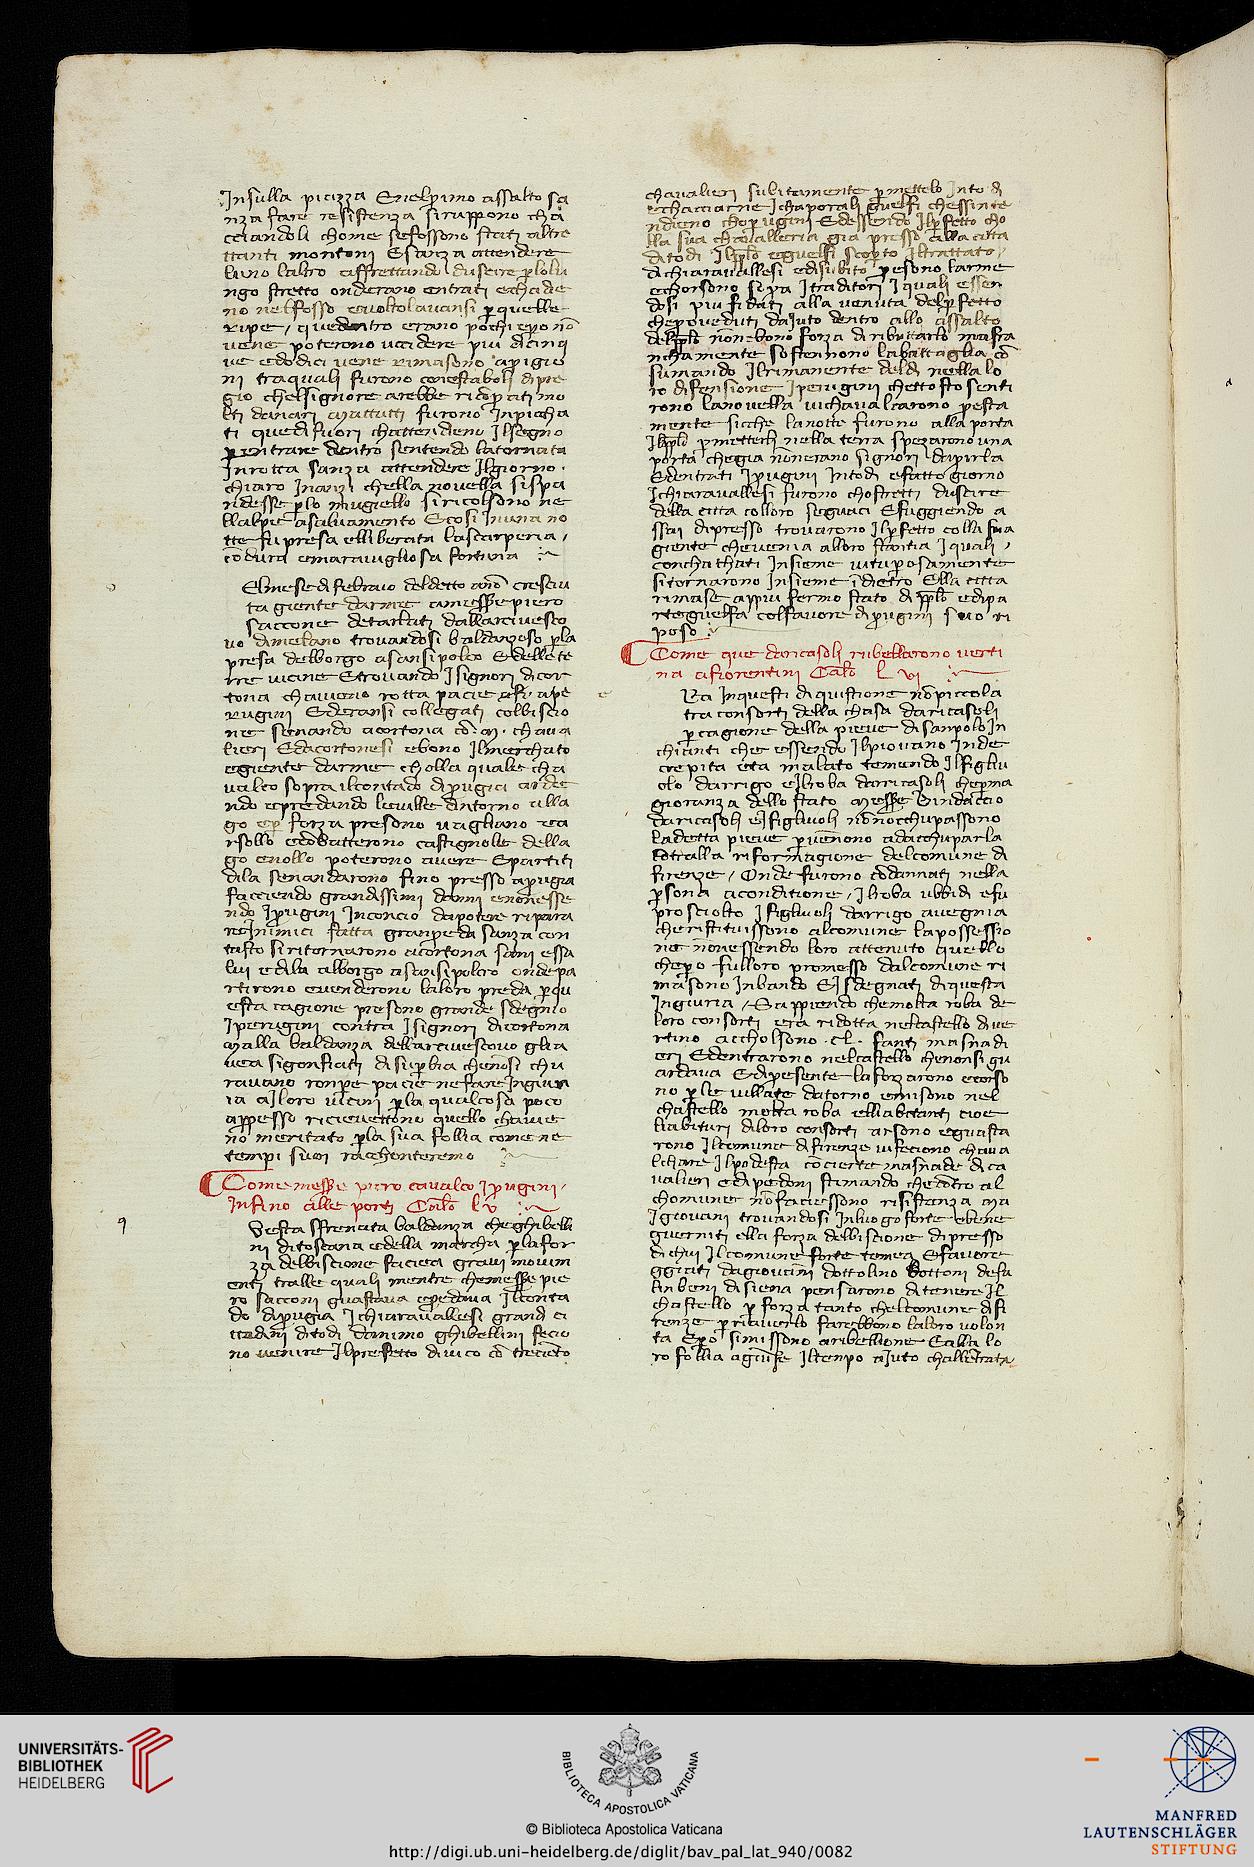 Insulla piazza Enelprimo assalto sa
nza fare resistenza siruppono cha
cciandoli chome sefossono stati altre
ttanti montoni Esanza attendere
luno laltro affrettando duscire plolu
ngo stretto onderano entrati echade
no nelfosso evoltolavansi pquelle
ripe / quedentro erano pochi epo nō
vene poterono uccidere piu dicinq
ve edodici vene rimasono aprigio
ni traquali furono conestaboli dipre
gio chelsignore arebbe ricoperati mo
lti danari mattutti furono Inpiccha
ti quedifuori chattendieno Ilsegno
pentrare dentro sentendo latornata
Inrotta sanza attendere Ilgiorno .
chiaro Inanzi chella novella sispa
ndesse plo mugiello siricolsono ne
llalpe asalvamento Ecosi Inuna no
tte fu presa elliberata lascarperia /
cōdura emaravigliosa fortuna
Elmese di febraio deldetto anō cresciu
ta giente darme amesspiero
saccone detarlati dallarcivesco
vo dimelano trovandosi baldanzoso pla
presa delborgo asansipolcro Edellete
rre vicine Etrovando Isignori dicor
tona chavieno rotta pacie &fe ape
rugini Ederansi collegati colbiscio
ne senando acortona cō . m . chava
lieri Edacortonesi ebono Ilmerchato
egiente darme cholla quale cha
valco sopra ilcontado dipugia arde
ndo epredando leville dintorno alla
go epe forza presono vagliano eca
rsollo ecōbatterono castignole della
go enollo poterono avere Epartiti
dila senandarono fino presso apugia
facciendo grandissimi danni enonesse
ndo Ipugini Inconcio dapotere ripara
re Inimici fatta granpeda sanza con
tasto siritornarono acortona sani essa
lvi edila alborgo asansipolcro ondepa
rtirono evenderono laloro preda pqu
esta cagione presono grande sdegno
Iperugini contra Isignori dicortona
Malla baldanza dellarcivescovo glia
vea sigonfiati disupbia chenōsi chu
ravano ronpe pacie nefare Ingiur
ia aIloro vicini pla qualcosa poco
appresso ricievettono quello chavie
no meritato pla sua follia come ne
tempi suoi racchonteremo
Come messe piero cavalco Iprugini /
Infino alle porti Capłō lv
Vesta sfrenata baldanza cheghibelli
ni ditoscana edella marcha plafor
za delbiscione faciea gravi movim
enti tralle quali mentre chemesse pie
ro sacconi guastava epredava Ilconta
do dipugia Ichiaravallesi grandi ci
ttadini ditodi danimo ghibellini fecio
no venire Ilprefetto divico cō treciēto
chavalieri subitamente pmettelo Into di
echacciarne Ichaporali guelfi chessinte
ndieno chopugini Edessendo Ilpfetto cho
lla sua chavalleria gia presso alla citta
datodi Ilpplo eguelfi scopto Iltrattato /
dichiaravallesi edisubito presono larme
echorsono sopra Itraditori Iquali essen
dosi piu fidati alla venuta delpfetto
chepoveduti daIuto dentro allo assalto
delpplo nōnebono forza diributtarlo mafra
nchamente sostennono labattaglia cō
sumando Ilrimanente deldi nella lo
ro difensione Iperugini chettosto senti
rono lanovella vichavalcarono presta
mente sicche lanotte furono alla porta
Ilpplo pmetterli nella terra spezarono una
porta chegia nōnerano signori dapirla
Edentrati Ipugini Intodi efatto giorno
Ichiaravallesi furono chostretti duscire
della citta colloro seguaci Efuggiendo a
ssai dipresso trovarono Ilpfetto colla sua
giente chevenia alloro stantia Iquali /
conchathati Insieme vituposamente
sitornarono Insieme īdietro Ella citta
rimase appiu fermo stato di pplō edipa
rteguelfa colfavore dipugini suo ri
poso
Come que daricasoli rubellarono verti
na afiorentini Capłō lvi
Ra Inquesti di quistione nōpiccola
tra consorti della chasa daricasoli
p cagione della pieve disanpolo In
chianti che essendo Ilpiovano Inde
crepita eta malato temendo Ifigliu
olo darrigo eIroba darricasoli chepma
gioranza dello stato Messe bindaccio
daricasoli eIfigliuoli nōnocchupassono
ladetta pieve pvēnono adacchuparla
cōtralla riformagione delcomune di
firenze / Onde furono cōdannati nella
psona aconditione / Iroba ubbidi efu
prosciolto Ifigliuoli darrigo avegnia
che ristituissono alcomune lapossessio
ne nōnessendo loro attenuto quello
chepo fulloro promesso dalcomune ri
masono Inbando eIsdegnati diquesta
Ingiuria / Sappiendo chemolta roba de
loro consorti era ridotta nelcastello dive
rtino accholsono . CL . fanti masnadi
eri Edentrarono nelcastello chenonsi gu
ardava Edipesente laforzarono ecorso
no ple villate datorno emisono nel
chastello molta roba elliabitanti cioe
liabituri diloro consorti arsono eguasta
rono Ilcomune difirenze vifeciono chava
lchare Ilpodesta cōcierte masnade dica
valieri edipedoni stimando chedētro al
chomune nōfaciessono risistenza Ma
Igiovani trovandosi Inluogo forte ebene
guerniti ella forza delbiscione dipresso
dichui Ilcomune forte temea Efavore
ggiati dagiovani dottolino bottoni desa
linbeni disiena pensarono ditenere Il
chastello p forza tanto chelcomune difi
renze priaverlo farebbono laloro volon
ta Epo simissono aribellione Ealla lo
ro follia agiūse Iltempo aIuto challētrata
UNIVERSITÄTS-
BIBLIOTHEK
HEIDELBERG
BIBLIOTECA APOSTOLICA VATICANA
© Biblioteca Apostolica Vaticana
http://digi.ub.uni-heidelberg.de/diglit/bav_pal_lat_940/0082
MANFRED
LAUTENSCHLÄGER
STIFTUNG